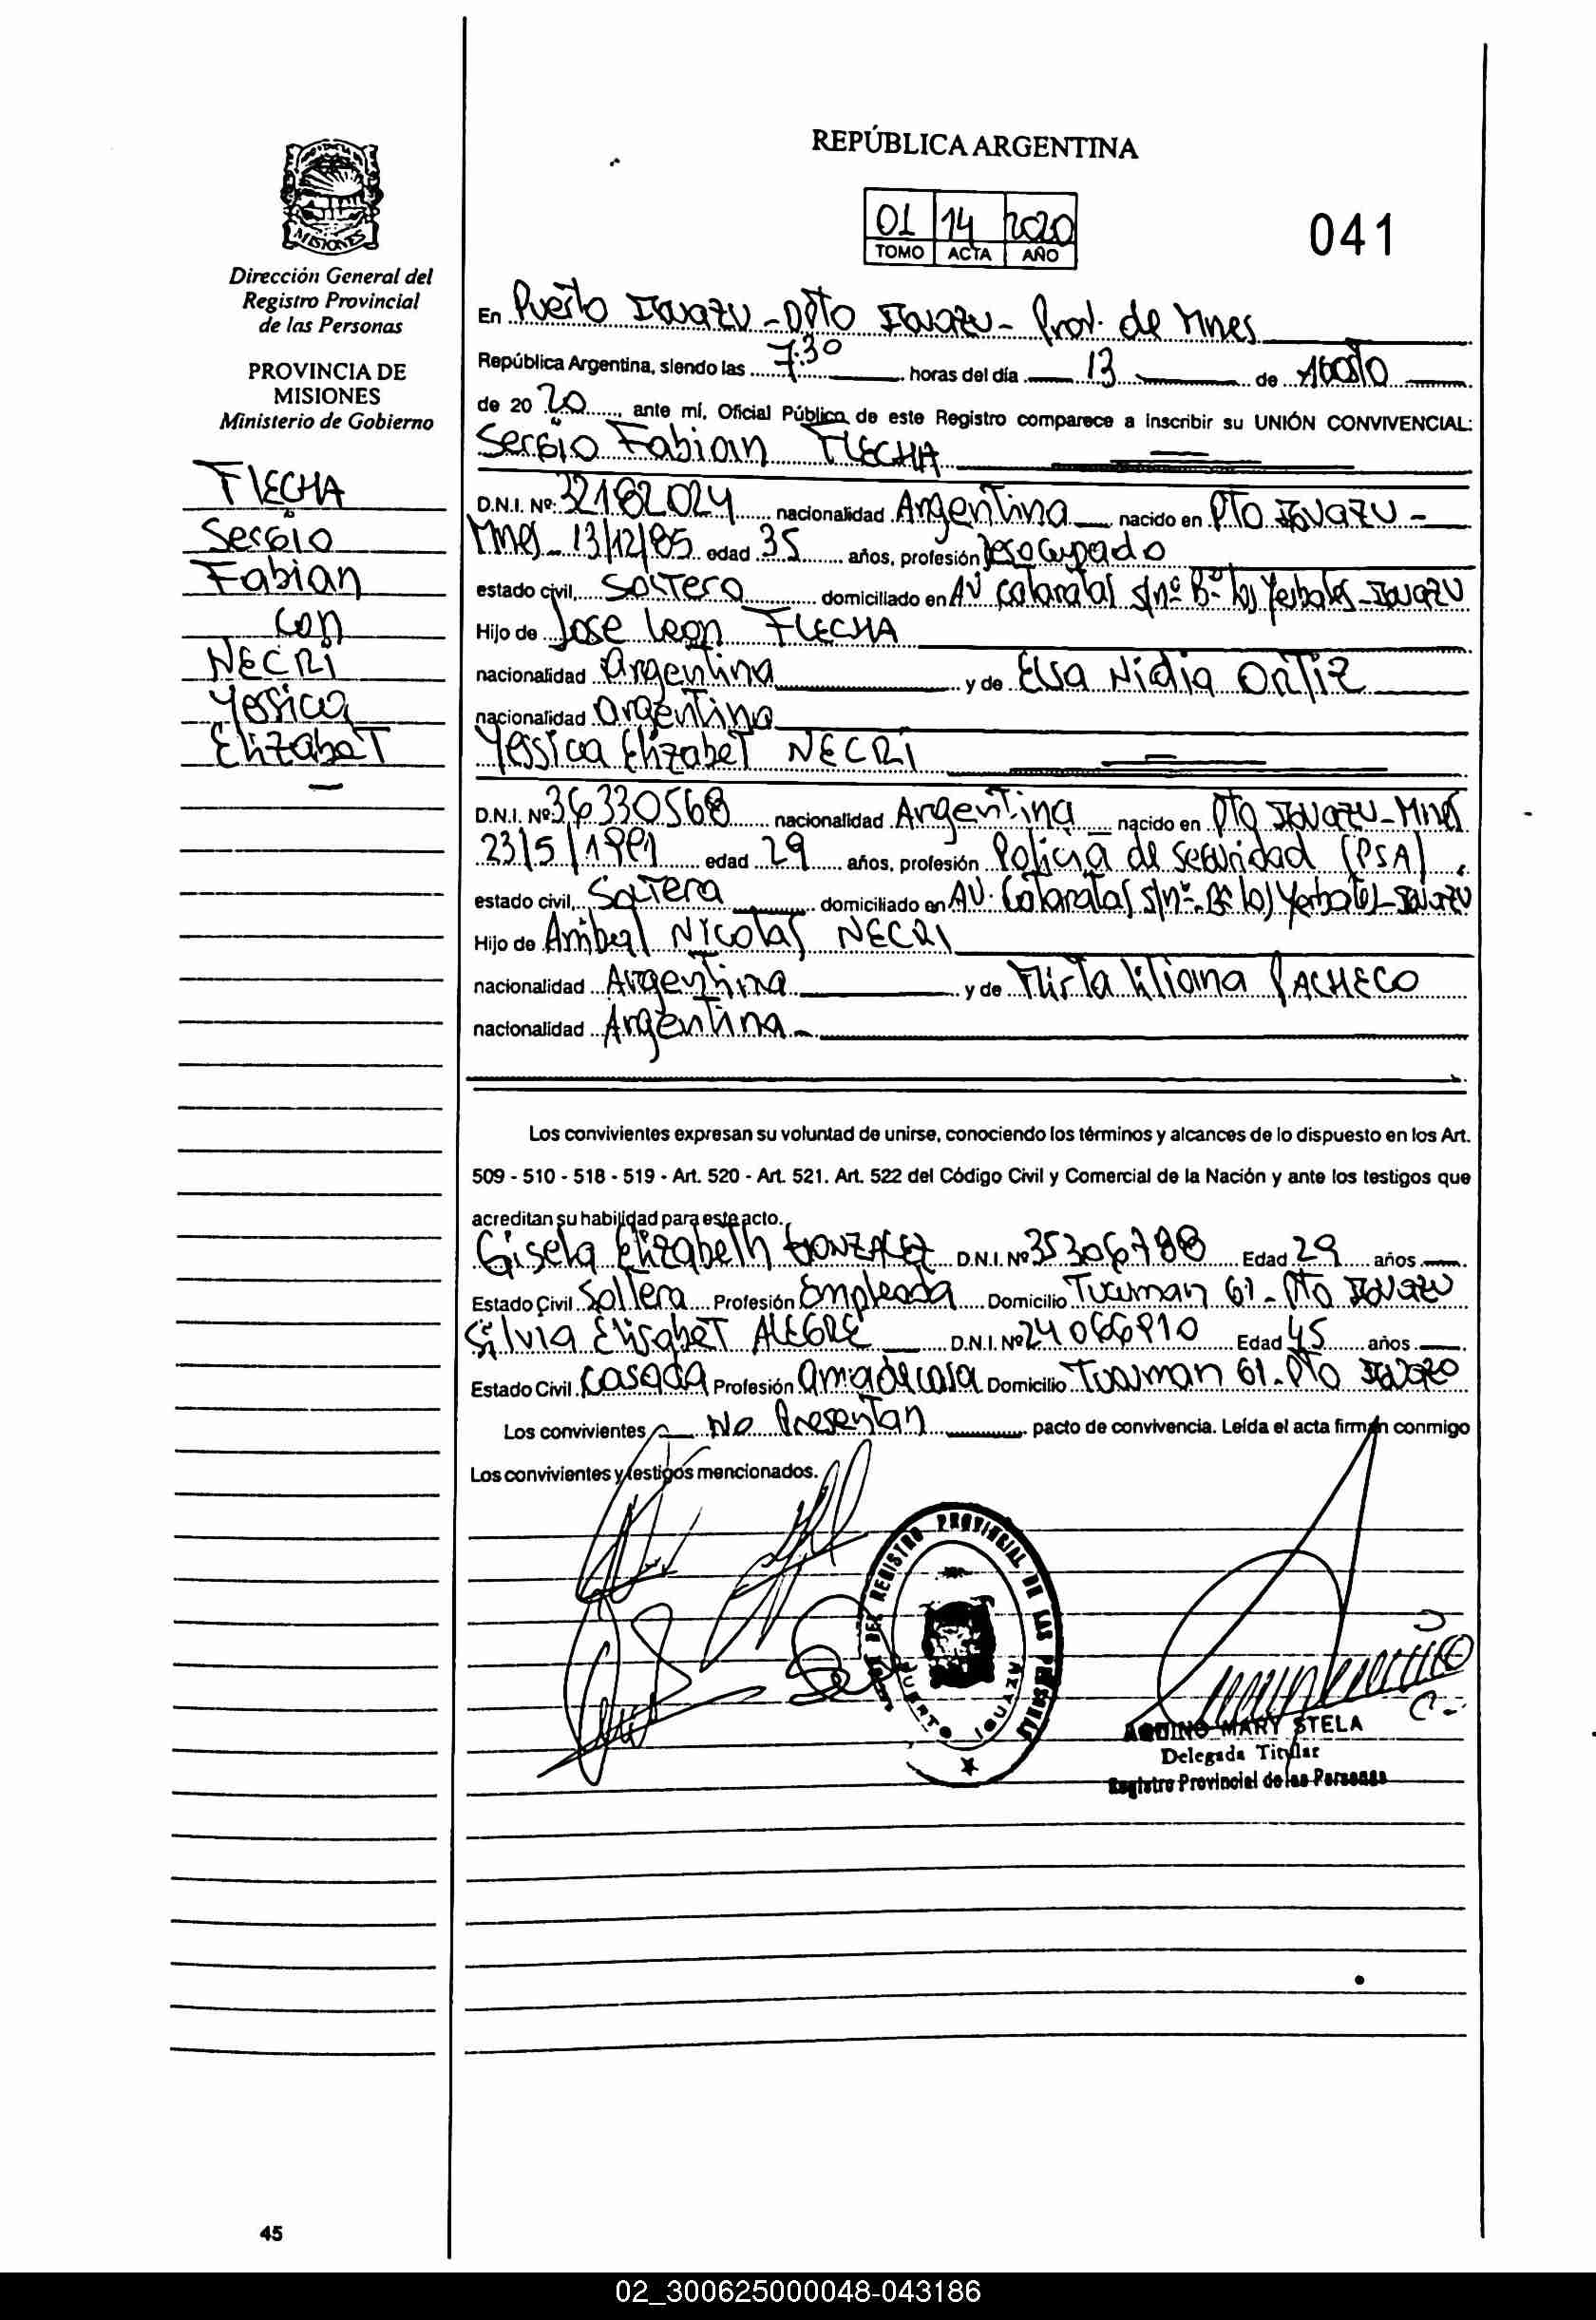 REPÚBLICA ARGENTINA
01 14 2020
TOMO ACTA AÑO
041
MISIONES
Dirección General del
Registro Provincial
de las Personas
PROVINCIA DE
MISIONES
Ministerio de Gobierno
FLECHA
Sergio
Fabian
con
NECRI
Yessica
Elizabet
En Puerto Iguazu - Dpto Iguazu - Prov. de Mnes
República Argentina, siendo las 7:30 horas del día 13 de Agosto
de 2020, ante mí, Oficial Público de este Registro comparece a inscribir su UNIÓN CONVIVENCIAL:
Sergio Fabian FLECHA
D.N.I. Nº: 32182024 nacionalidad Argentina nacido en Pto Iguazu -
Mnes - 13/12/85 edad 35 años, profesión Desocupado
estado civil, Soltero domiciliado en AV Cataratas s/nº Bº los Yerbales - Iguazu
Hijo de Jose Leon FLECHA
nacionalidad argentina y de Elsa Nidia ORTIZ
nacionalidad argentina
Yessica Elizabet NECRI
D.N.I. Nº: 36330568 nacionalidad Argentina nacido en Pto Iguazu - Mnes
23/5/1991 edad 29 años, profesión Policia de Seguridad (PSA).
estado civil, Soltera domiciliado en AV. Cataratas s/nº - Bº los Yerbales - Iguazu
Hijo de Anibal Nicolas NECRI
nacionalidad Argentina y de Mirta Liliana PACHECO
nacionalidad Argentina -
Los convivientes expresan su voluntad de unirse, conociendo los términos y alcances de lo dispuesto en los Art.
509 - 510 - 518 - 519 - Art. 520 - Art. 521. Art. 522 del Código Civil y Comercial de la Nación y ante los testigos que
acreditan su habilidad para este acto.
Gisela Elizabeth GONZALEZ D.N.I. Nº 35306788 Edad 29 años
Estado Civil Soltera Profesión Empleada Domicilio Tucuman 61 - Pto Iguazu
Silvia Elisabet ALEGRE D.N.I. Nº 24066910 Edad 45 años
Estado Civil Casada Profesión ama de casa Domicilio Tucuman 61 - Pto Iguazu
Los convivientes No Presentan pacto de convivencia. Leída el acta firman conmigo
Los convivientes y testigos mencionados.
DEL REGISTRO PROVINCIAL DE LAS PERSONAS
PUERTO IGUAZU
AQUINO MARY STELA
Delegada Titular
Registro Provincial de las Personas
45
02_300625000048-043186